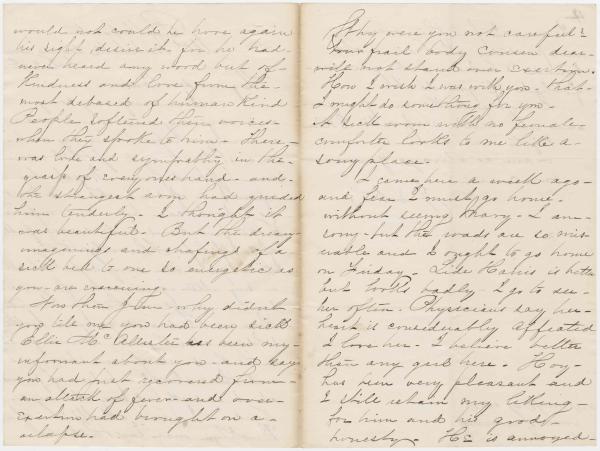 would not could he have again
his sight desire it. for he had
never heard any word but of
kindness and love from the
most debased of humankind
People softened their voices
when they spoke to him - There
was love and sympathy in the
grasp of everyones hand - and
the strongest arm had guided
him tenderly. I thought it
was beautiful. But the dreary
imaginings and of a
sick bed to one so energetic as
you are
Now then John - why didn't
you tell me you had been sick
Ellie McAllister has been my
informant about you - and says
you had just recovered from
an attack of fever - and over-
exertion had brought on a
relapse.
12
Why were you not careful?
Your frail body Cousin dear
will not stand over exertion.
How I wish I was with you. That
I might do something for you.
A sick room with no female
comforter looks to me like a
sorry place.
I came here a week ago
and fear I must go home
without seeing Mary - I am
sorry - but the roads are so mis-
erable and I ought to go home
on Friday. is better
but looks badly - I go to see
her often. Physicians say her
heart is considerably affected
I love her - I believe better
than any girl here.
has been very pleasant and
I still retain my liking
for him and his good
honesty. He is annoyed